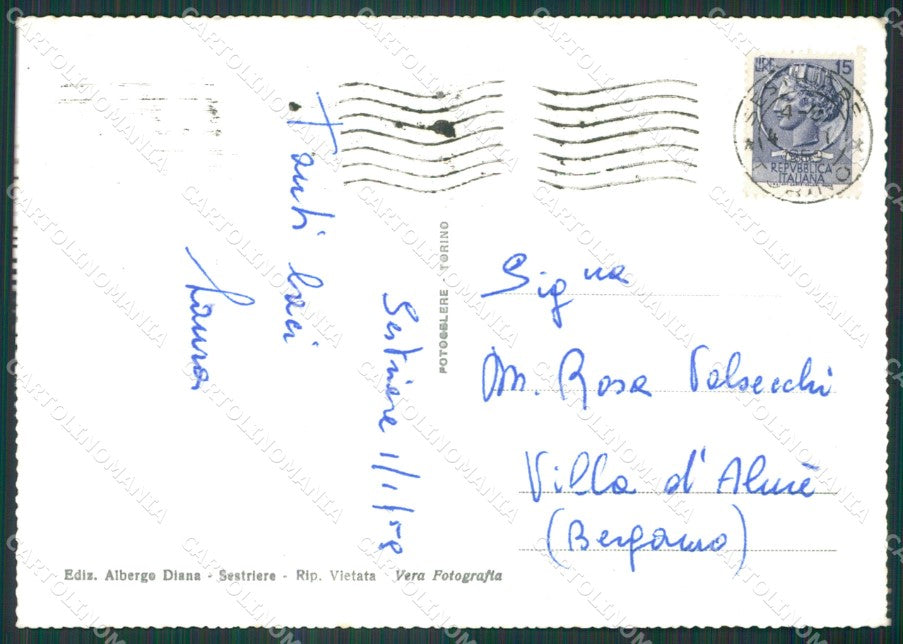 Tanti baci
Laura
Sestriere 1/1/58
FOTOCELERE - TORINO
LIRE 15
REPVBBLICA
ITALIANA
Signa
M. Rosa Valsecchi
Villa d'Almè
(Bergamo)
Ediz. Albergo Diana - Sestriere - Rip. Vietata - Vera Fotografia
CARTOLINOMANIA